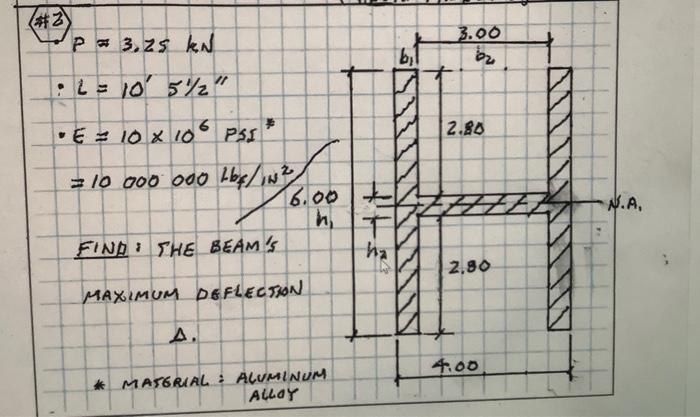 #3
• P = 3.25 kN
• L = 10' 5 1/2"
• E = 10 x 10⁶ PSI *
= 10 000 000 Lbf/IN²
FIND: THE BEAM'S
MAXIMUM DEFLECTION
Δ.
* MATERIAL: ALUMINUM
ALLOY
3.00
b₁
b₂
2.80
6.00
h₁
N.A.
h₂
2.80
4.00